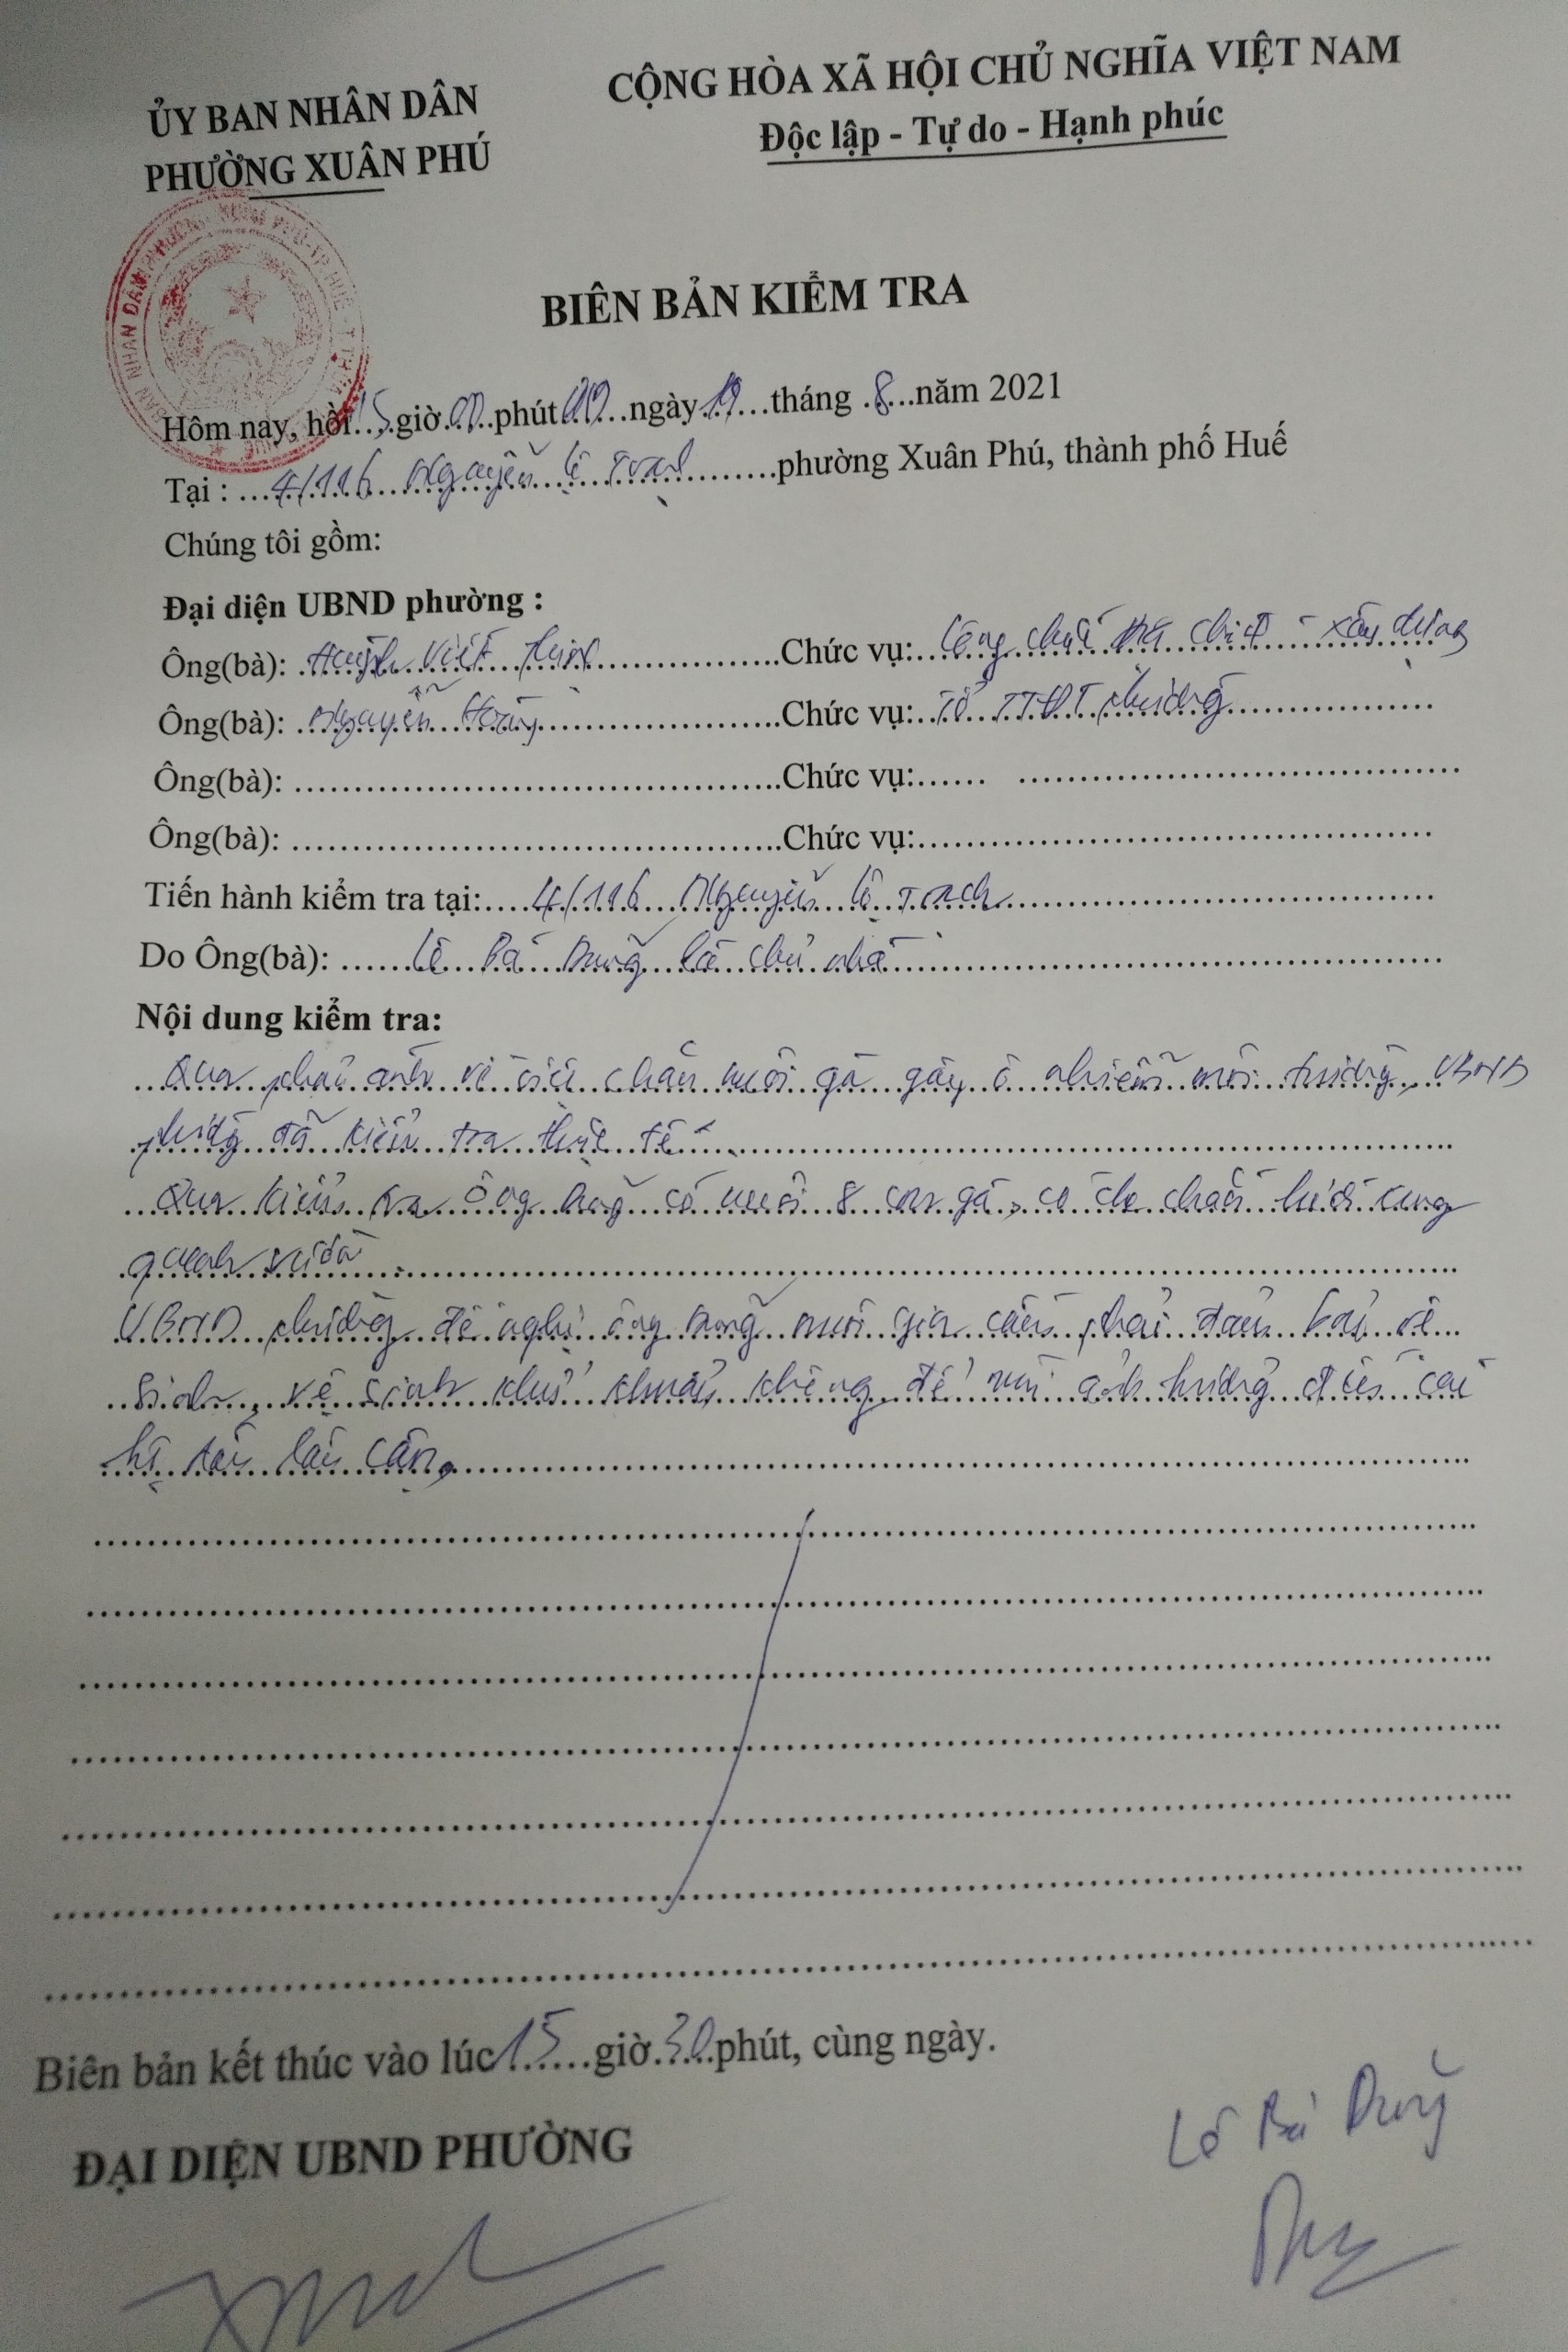 ỦY BAN NHÂN DÂN
PHƯỜNG XUÂN PHÚ
CỘNG HÒA XÃ HỘI CHỦ NGHĨA VIỆT NAM
Độc lập - Tự do - Hạnh phúc
BIÊN BẢN KIỂM TRA
Hôm nay, hồi 15 giờ 00 phút ngày 19 tháng 8 năm 2021
Tại : 4/116 Nguyễn Lộ Trạch phường Xuân Phú, thành phố Huế
Chúng tôi gồm:
Đại diện UBND phường :
Ông(bà): Huỳnh Viết Chức vụ: Công chức địa chính - xây dựng
Ông(bà): Nguyễn Hoàng Chức vụ: Tổ TTĐT phường
Ông(bà): Chức vụ:
Ông(bà): Chức vụ:
Tiến hành kiểm tra tại: 4/116 Nguyễn Lộ Trạch
Do Ông(bà): Lê Bá Dũng là chủ nhà
Nội dung kiểm tra:
Qua phản ánh về việc chăn nuôi gà gây ô nhiễm môi trường, UBND
phường đã kiểm tra thực tế.
Qua kiểm tra ông Dũng có nuôi 8 con gà, có che chắn lưới xung
quanh vườn.
UBND phường đề nghị ông Dũng nuôi gia cầm phải đảm bảo vệ
sinh, vệ sinh khử khuẩn không để mùi ảnh hưởng đến các
hộ dân lân cận.
Biên bản kết thúc vào lúc 15 giờ 30 phút, cùng ngày.
ĐẠI DIỆN UBND PHƯỜNG
Lê Bá Dũng